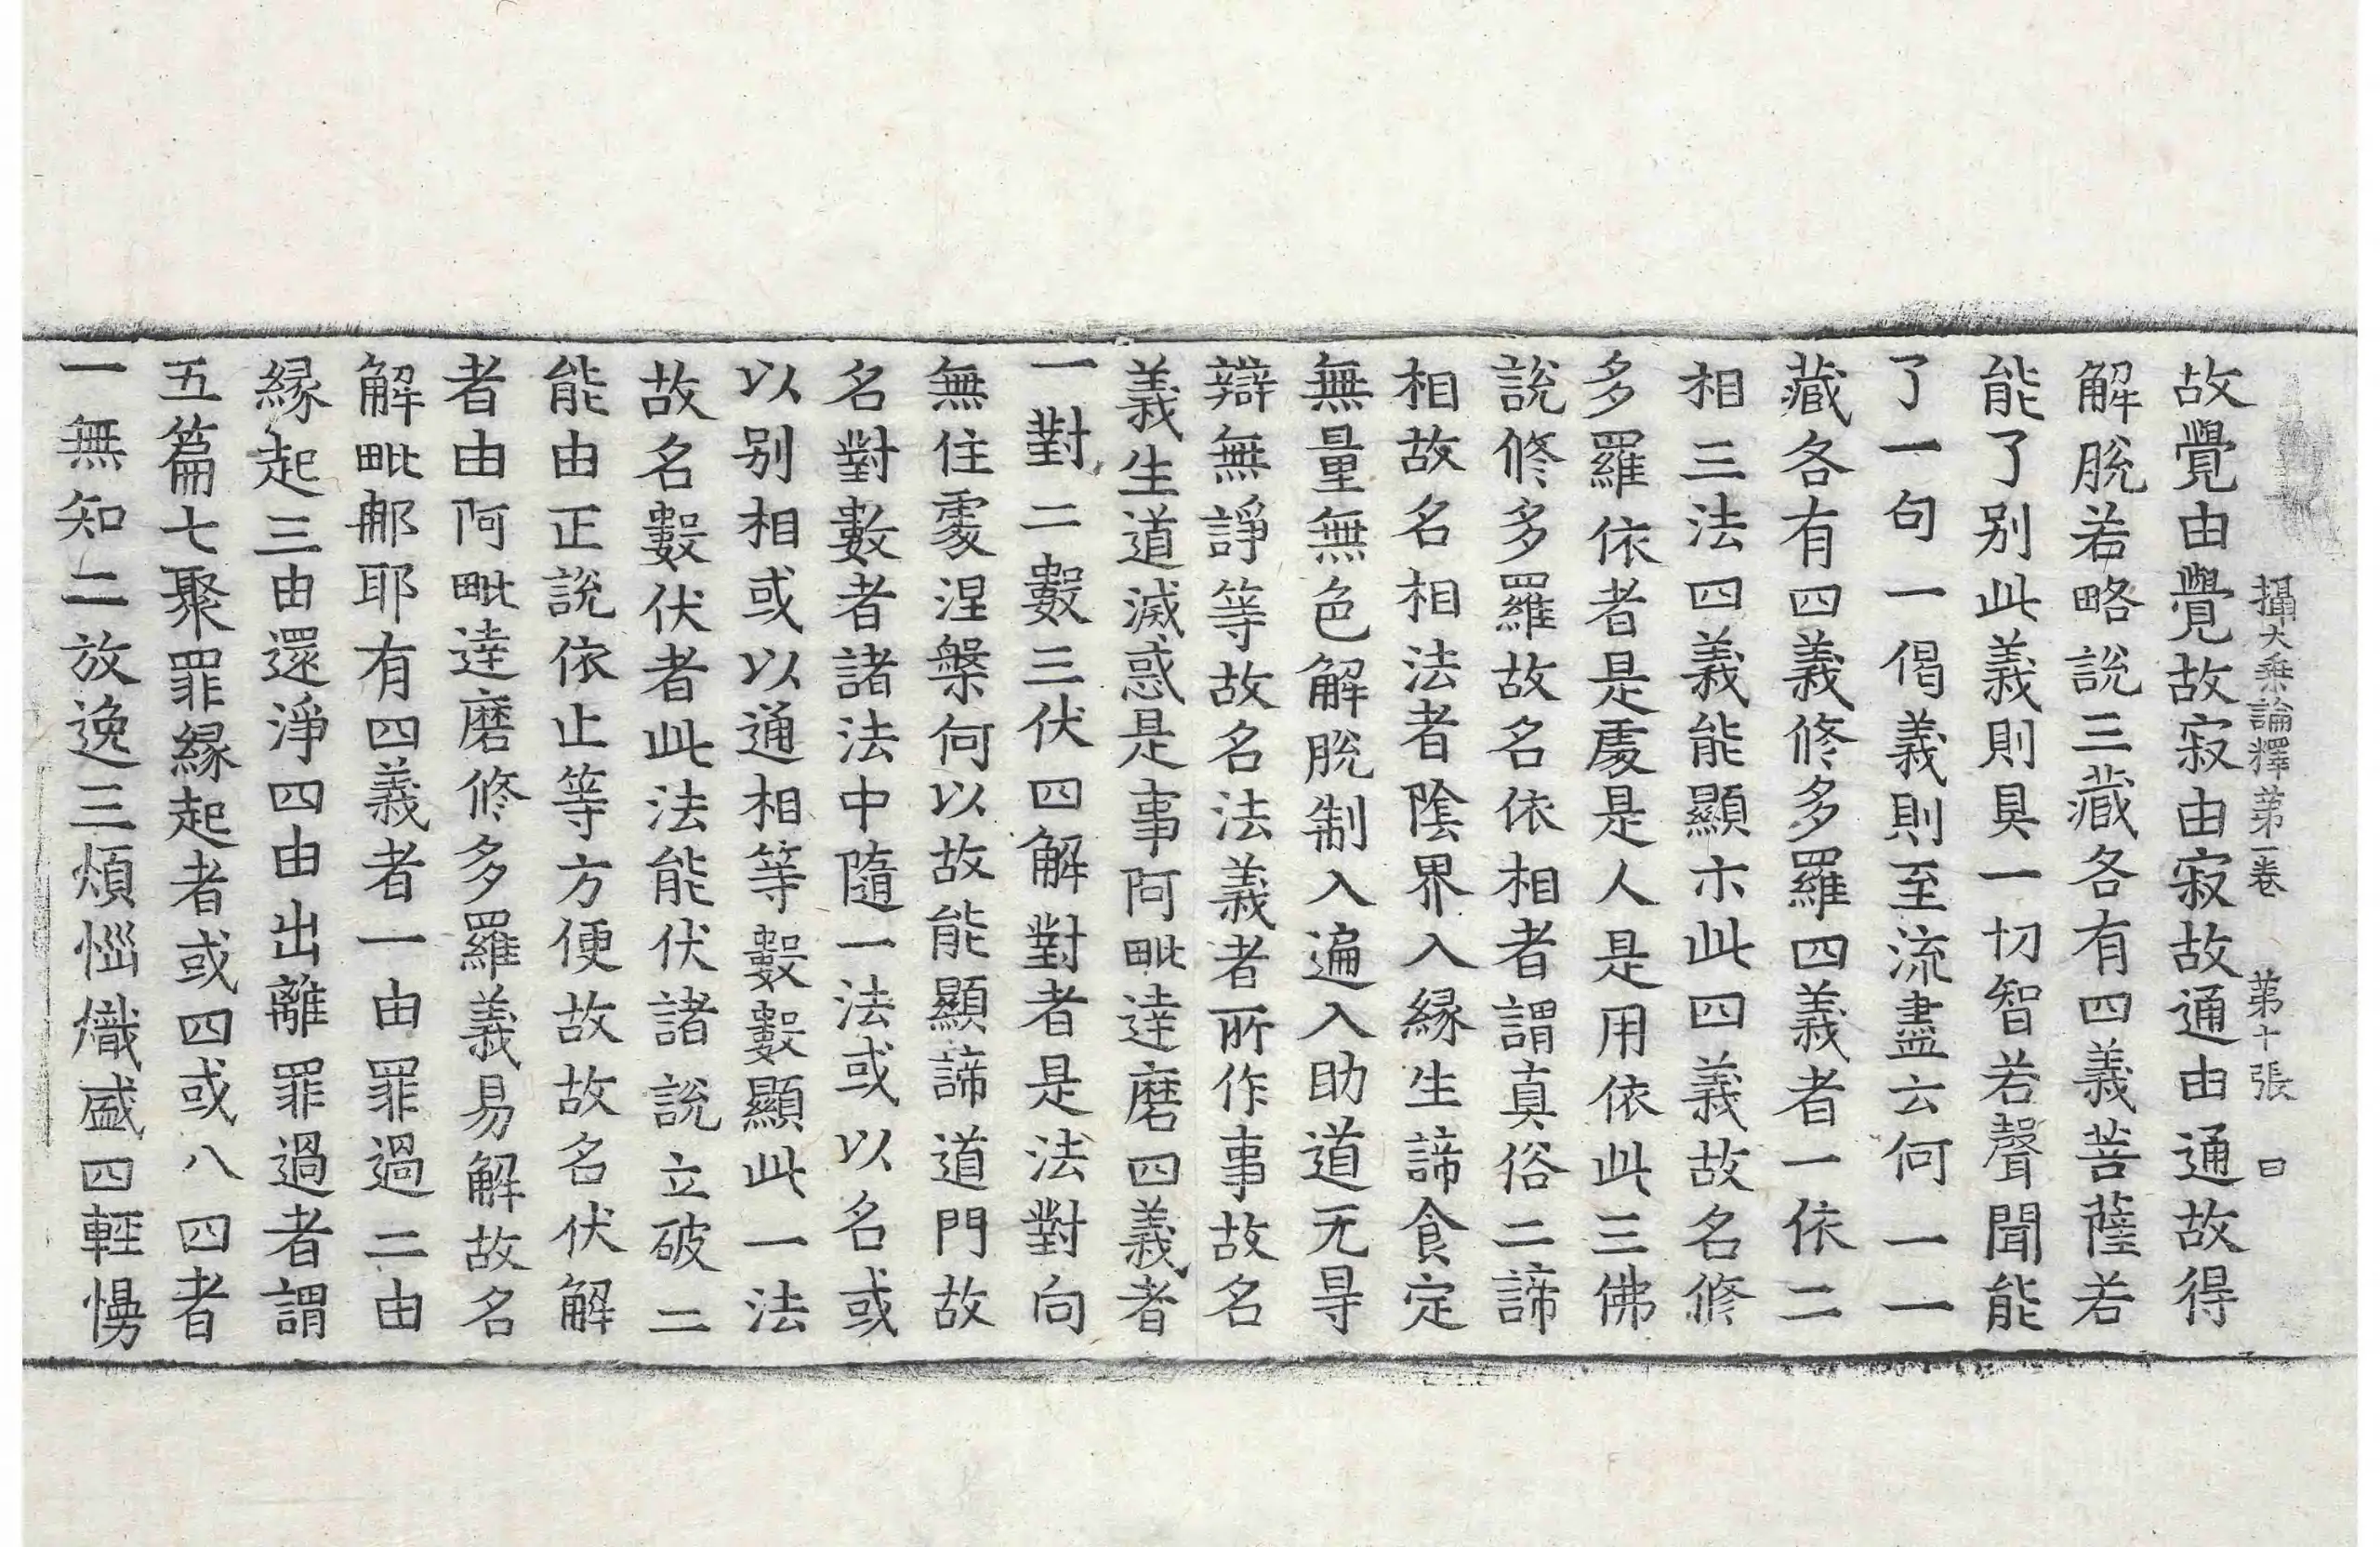 攝大乗論釋苐一卷 苐十張 曰
故覺由覺故寂由寂故通由通故得
解脫若略說三藏各有四義菩薩若
能了别此義則具一切智若聲聞能
了一句一偈義則至流盡云何一一
藏各有四義修多羅四義者一依二
相三法四義能顯示此四義故名修
多羅依者是處是人是用依此三佛
說修多羅故名依相者謂真俗二諦
相故名相法者陰界入緣生諦食定
無量無色解脫制入遍入助道无㝵
辯無諍等故名法義者所作事故名
義生道滅惑是事阿毗達磨四義者
一對二數三伏四解對者是法對向
無住處涅槃何以故能顯諦道門故
名對數者諸法中隨一法或以名或
以别相或以通相等數數顯此一法
故名數伏者此法能伏諸說立破二
能由正說依止等方便故故名伏解
者由阿毗達磨修多羅義易解故名
解毗那耶有四義者一由罪過二由
緣起三由還淨四由出離罪過者謂
五篇七聚罪緣起者或四或八四者
一無知二放逸三煩惱熾盛四輕慢